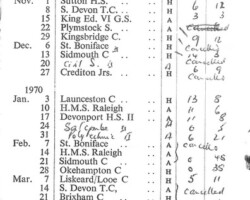 Nov. 1 Sutton H.S. .. .. H 6 12
8 S. Devon T.C. .. .. H
15 King Ed. VI G.S. .. A 3 3
22 Plymstock S. .. .. A Cancelled
29 Kingsbridge C. .. H 9 12
Dec. 6 St. Boniface B .. Cancelled
13 Sidmouth C .. H 3 8
20
27 Crediton Jrs. .. Cancelled
1970
Jan. 3 Launceston C .. H 13 8
10 H.M.S. Raleigh .. H 11
17 Devonport H.S. II .. H 11 8
24 Salcombe
31 Polytechnic B
Feb. 7 St. Boniface .. cancelled
14 H.M.S. Raleigh ..
21 Sidmouth C .. A 0 48
28 Okehampton C .. H 0 35
Mar. 7 Liskeard/Looe C .. H 5 11
14 S. Devon T.C, .. A cancelled
21 Brixham C